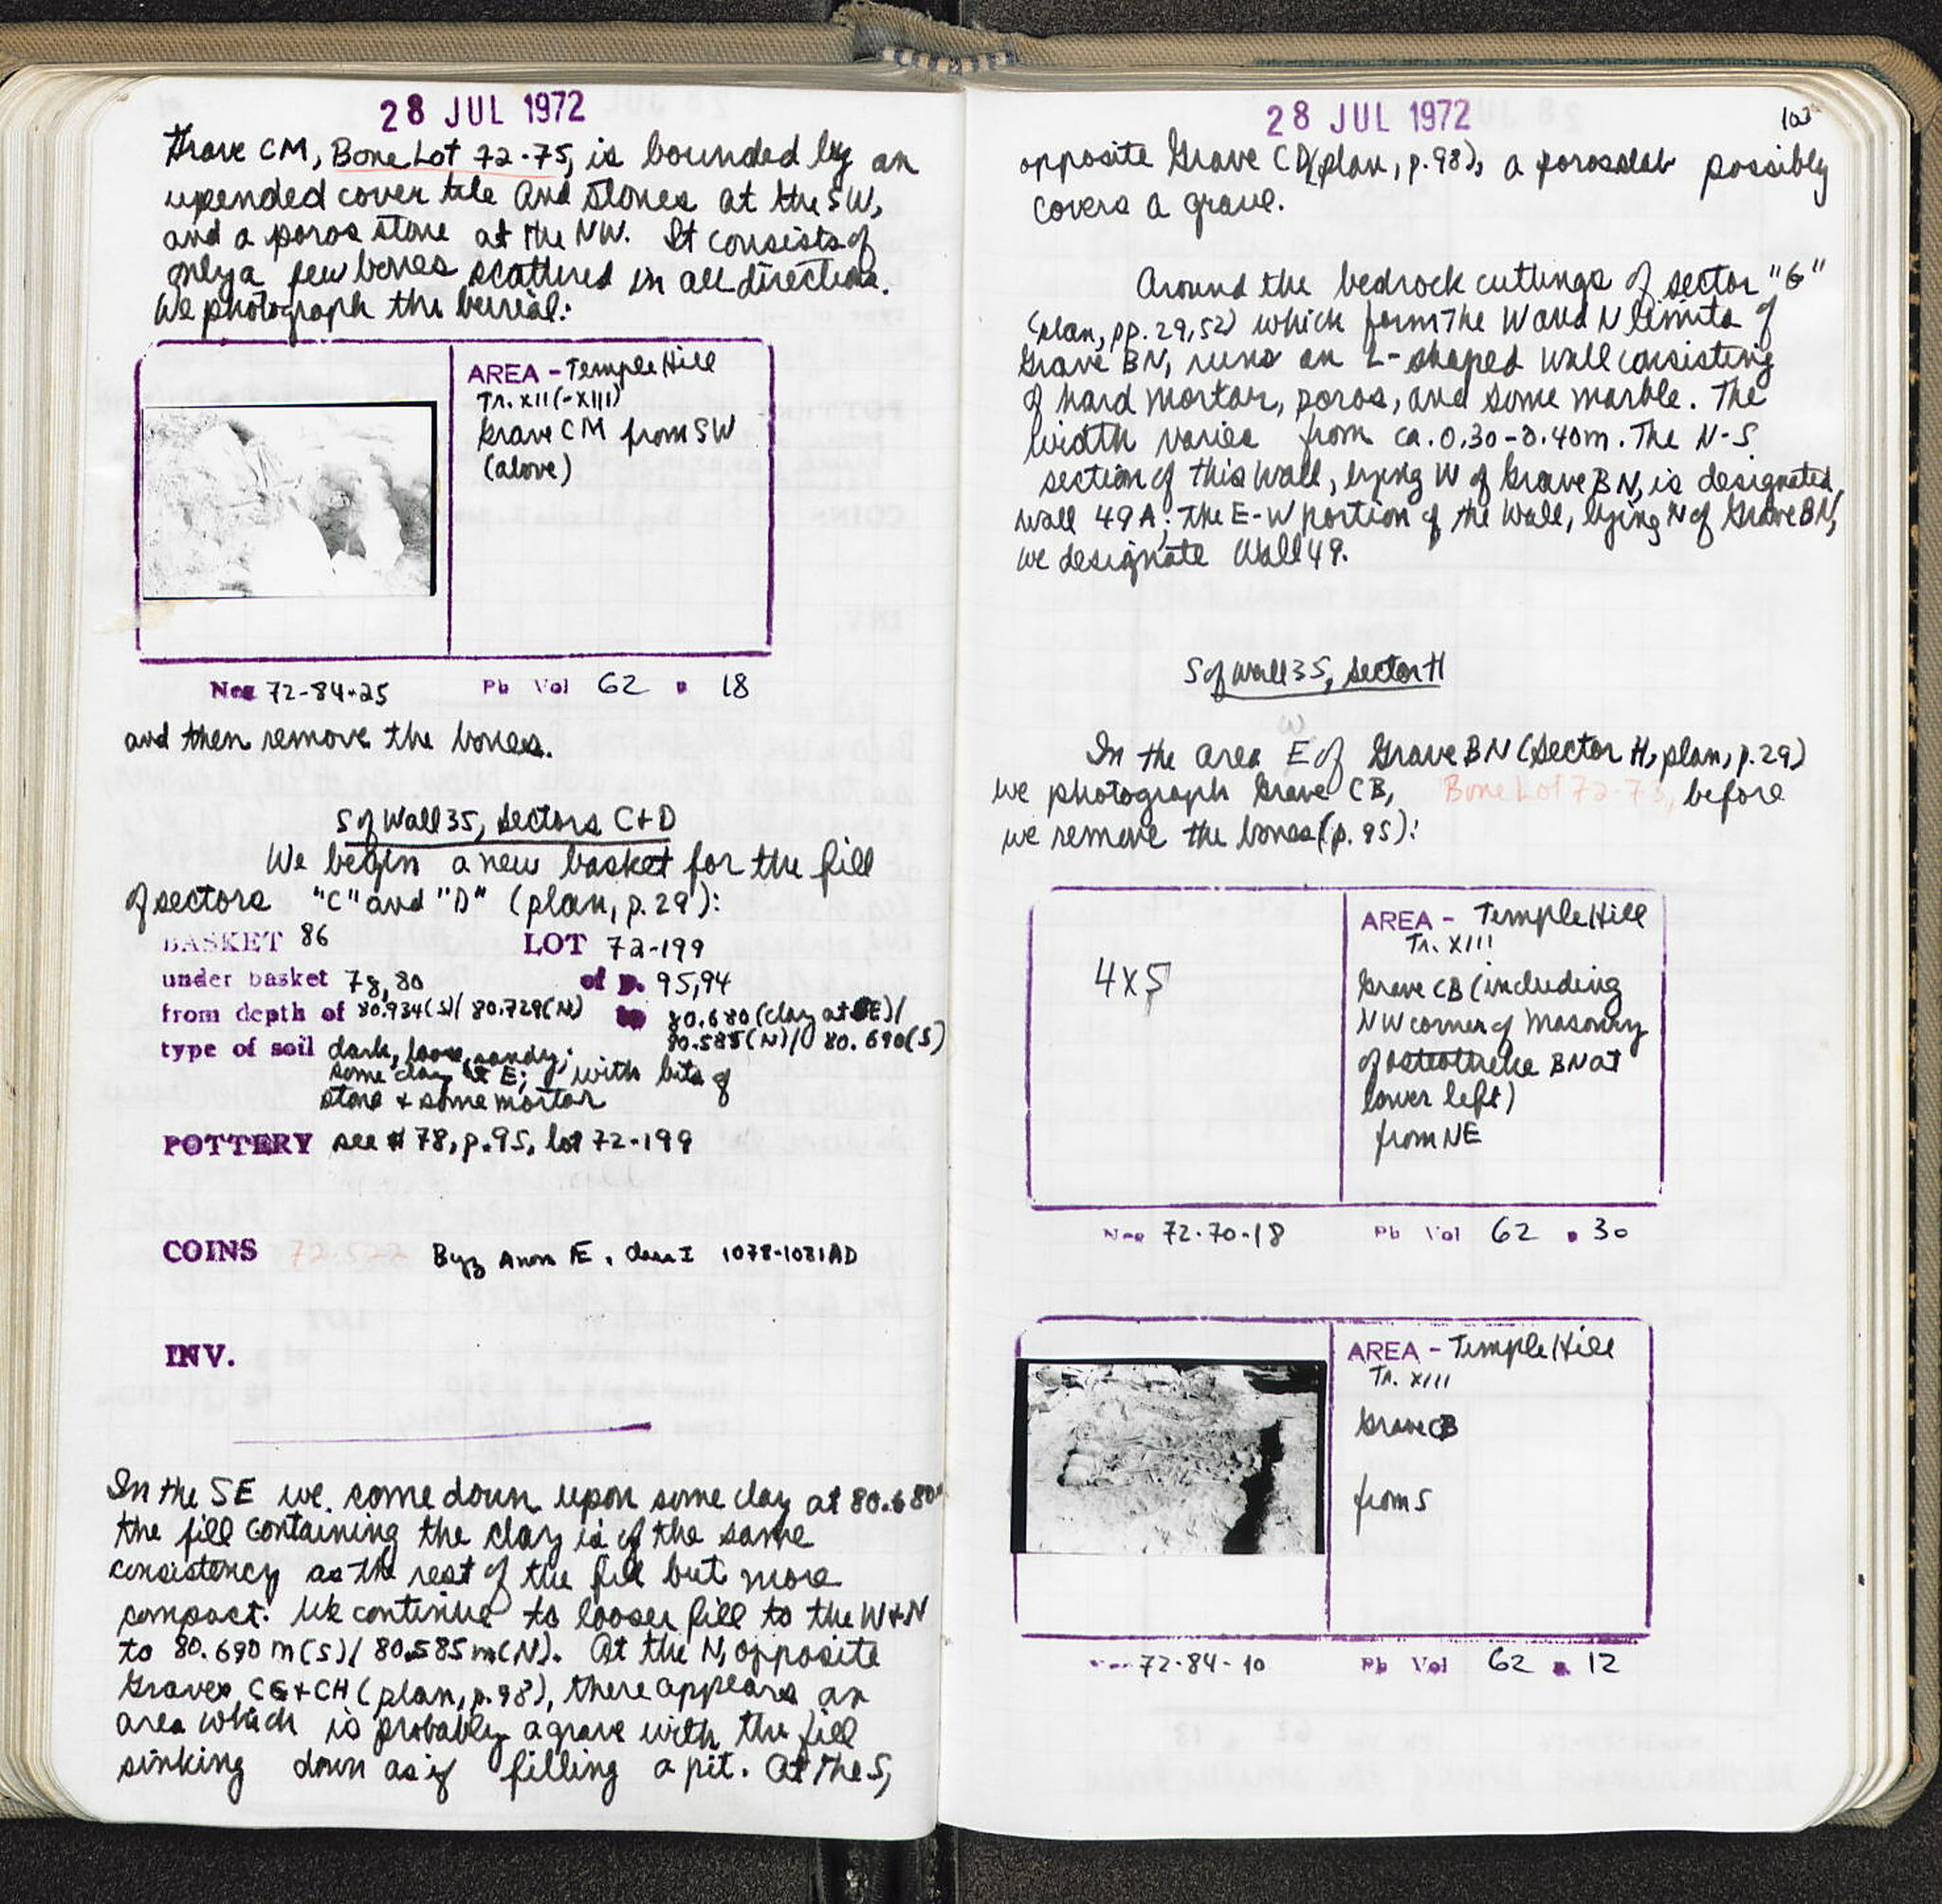 28 JUL 1972
Grave CM, Bone Lot 72-75, is bounded by an
upended cover tile and stones at the SW,
and a poros stone at the NW. It consists of
only a few bones scattered in all directions.
We photograph the burial:
AREA - Temple Hill
Tr. XII (-XIII)
Grave CM from SW
(above)
Neg 72-84-25 Pb Vol 62 p 18
and then remove the bones.
S of Wall 35, Sectors C+D
We begin a new basket for the fill
of sectors "C" and "D" (plan, p.29):
BASKET 86 LOT 72-199
under basket 78,80 of p. 95,94
from depth of 80.934(S)/ 80.729(N) to 80.680 (clay at SE)/
80.585(N)/ 80.690(S)
type of soil dark, loose, sandy;
some clay at E; with bits of
stone + some mortar
POTTERY see # 78, p.95, lot 72-199
COINS 72-522 Byz Anon Æ, class I 1078-1081 AD
INV.
In the SE we come down upon some clay at 80.680m
the fill containing the clay is of the same
consistency as the rest of the fill but more
compact. We continue to looser fill to the W+N
to 80.690 m(S)/ 80.585 m(N). At the N, opposite
Graves CG+CH (plan, p.98), there appears an
area which is probably a grave with the fill
sinking down as if filling a pit. At the S,
28 JUL 1972
opposite Grave CD (plan, p.98), a poros slab possibly
covers a grave.
Around the bedrock cuttings of sector "G"
(plan, pp. 29, 52) which form the W and N limits of
Grave BN, runs an L-shaped wall consisting
of hard mortar, poros, and some marble. The
width varies from ca. 0.30-0.40m. The N-S
section of this wall, lying W of Grave BN, is designated
Wall 49A; the E-W portion of the wall, lying N of Grave BN,
we designate Wall 49.
S of Wall 35, Sector H
W
In the area E of Grave BN (Sector H, plan, p.29)
we photograph Grave CB, Bone Lot 72-73, before
we remove the bones (p.95):
4x5
AREA - Temple Hill
Tr. XIII
Grave CB (including
NW corner of masonry
of osteotheke BN at
lower left)
from NE
Neg 72-70-18 Pb Vol 62 p 30
AREA - Temple Hill
Tr. XIII
Grave CB
from S
72-84-10 Pb Vol 62 p 12